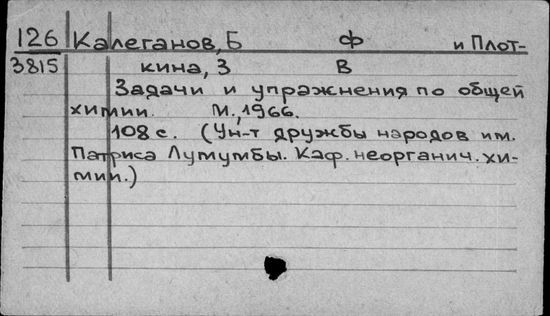 126 Калеганов, Б Ф и Плот-
3815 кина, З В
Задачи и упражнения по общей
химии. М., 1966.
108 с. (Ун-т дружбы народов им.
Патриса Лумумбы. Каф. неорганич. хи-
мии.)